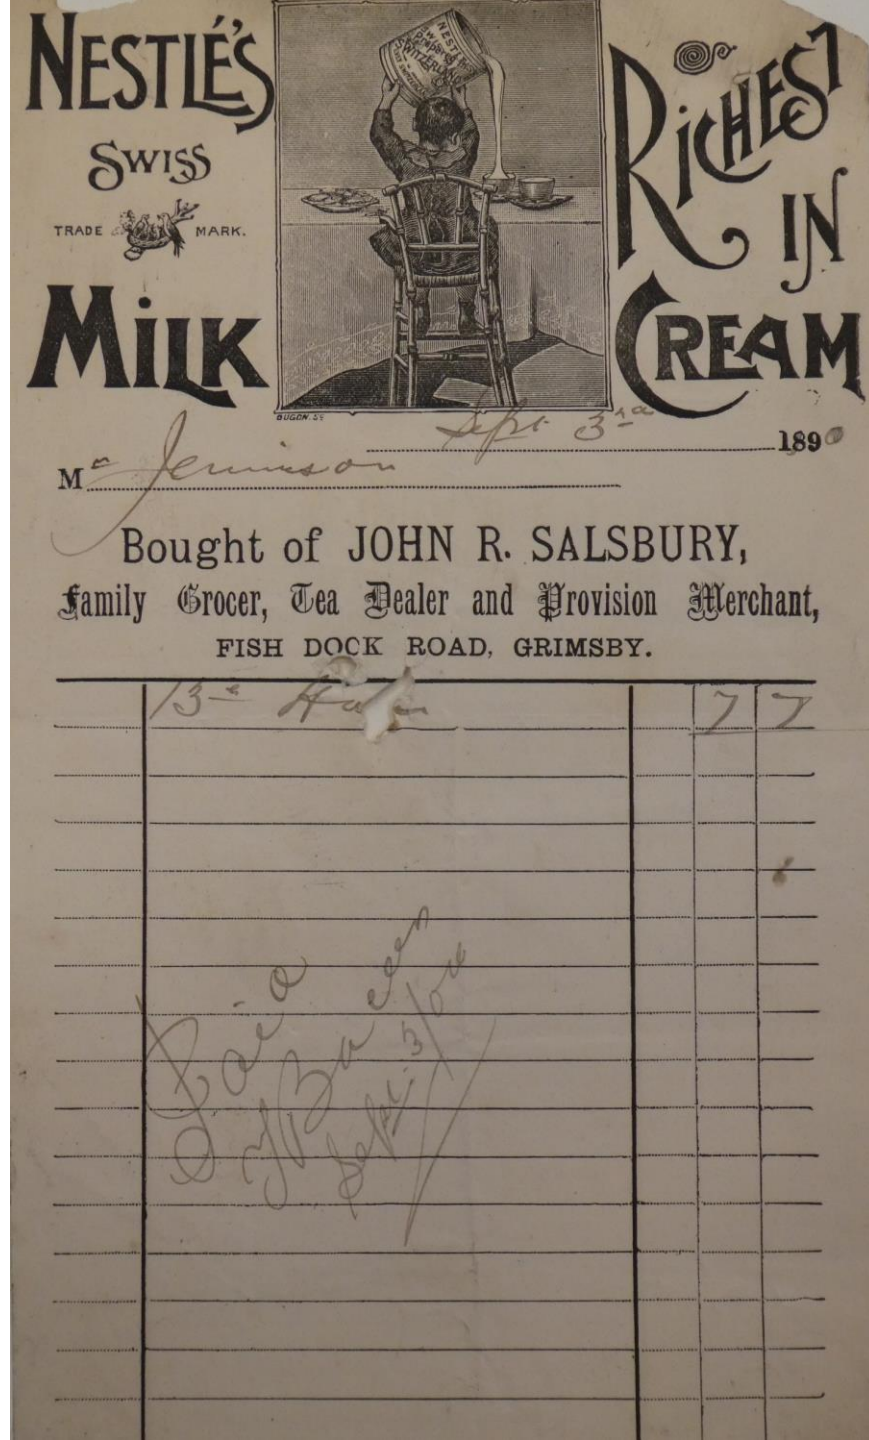 NESTLÉ'S
SWISS
TRADE MARK.
MILK
NESTLÉ'S
SWITZERLAND
RICHEST
IN
CREAM
BUGON. SC
Sept 3rd 1890
Mr Jenninson
Bought of JOHN R. SALSBURY,
Family Grocer, Tea Dealer and Provision Merchant,
FISH DOCK ROAD, GRIMSBY.
7 7
Paid
Sept. 3/00